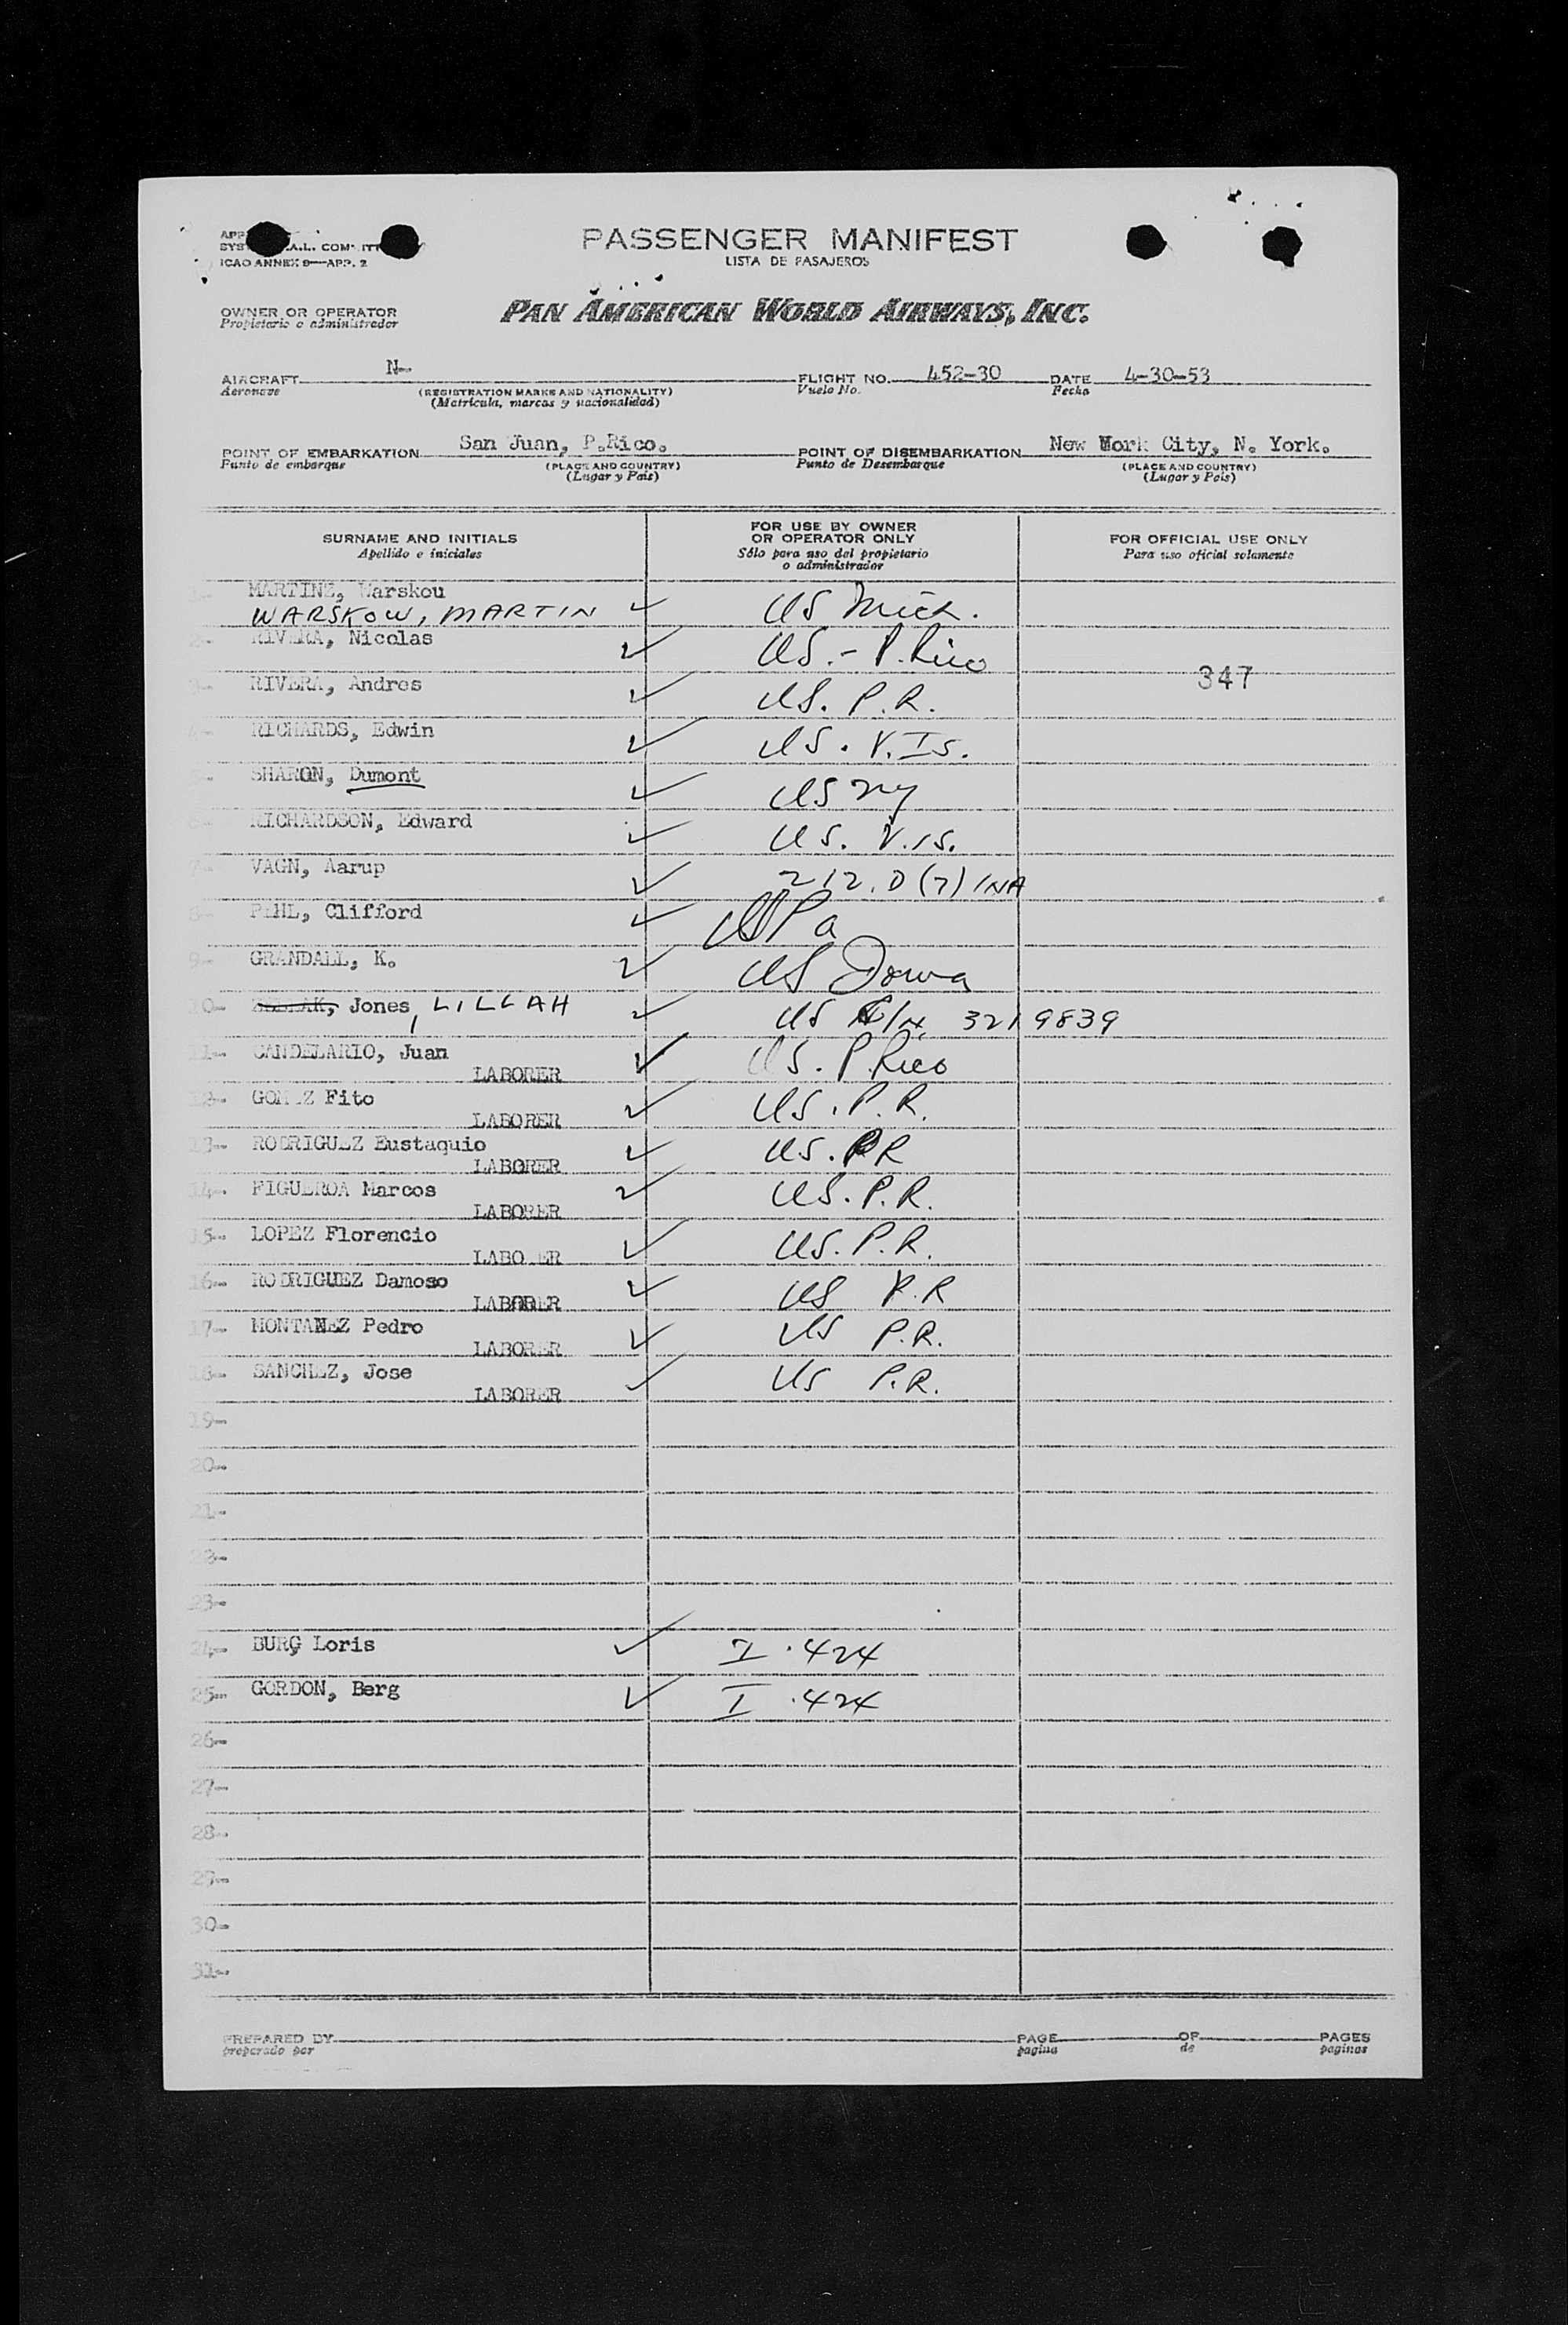 PASSENGER MANIFEST
LISTA DE PASAJEROS
ICAO ANNEX 9—APP. 2
OWNER OR OPERATOR
Propietario o administrador
PAN AMERICAN WORLD AIRWAYS, INC.
AIRCRAFT N- FLIGHT NO. 452-30 DATE 4-30-53
Aeronave (REGISTRATION MARKS AND NATIONALITY) Vuelo No. Fecha
(Matricula, marcas y nacionalidad)
POINT OF EMBARKATION San Juan, P.Rico. POINT OF DISEMBARKATION New York City, N. York.
Punto de embarque (PLACE AND COUNTRY) Punto de Desembarque (PLACE AND COUNTRY)
(Lugar y Pais) (Lugar y Pais)
SURNAME AND INITIALS
Apellido e iniciales
FOR USE BY OWNER
OR OPERATOR ONLY
Sólo para uso del propietario
o administrador
FOR OFFICIAL USE ONLY
Para uso oficial solamente
MARTINE, Warskou
WARSKOW, MARTIN ✓ US Mich.
2- RIVERA, Nicolas ✓ US.- P. Rico
347
3- RIVERA, Andres ✓ US. P.R.
4- RICHARDS, Edwin ✓ US. V.Is.
5- SHARON, Dumont ✓ US NY
6- RICHARDSON, Edward ✓ US. V.IS.
7- VAGN, Aarup ✓ 212.D (7) INA
8- PEHL, Clifford ✓ US Pa
9- GRANDALL, K. ✓ US Iowa
10- Jones, LILLAH ✓ US C/N 3219839
11- CANDELARIO, Juan ✓ US. P. Rico
LABORER
12- GOMEZ Fito ✓ US. P.R.
LABORER
13- RODRIGUEZ Eustaquio ✓ US. PR
LABORER
14- FIGUEROA Marcos ✓ US. P.R.
LABORER
15- LOPEZ Florencio ✓ US. P.R.
LABORER
16- RODRIGUEZ Damoso ✓ US P.R
LABORER
17- MONTANEZ Pedro ✓ US P.R.
LABORER
18- SANCHEZ, Jose ✓ US P.R.
LABORER
19-
20-
21-
22-
23-
24- BURG Loris ✓ I .424
25- GORDON, Berg ✓ I .424
26-
27-
28-
29-
30-
31-
PREPARED BY PAGE OF PAGES
preparado por pagina de paginas